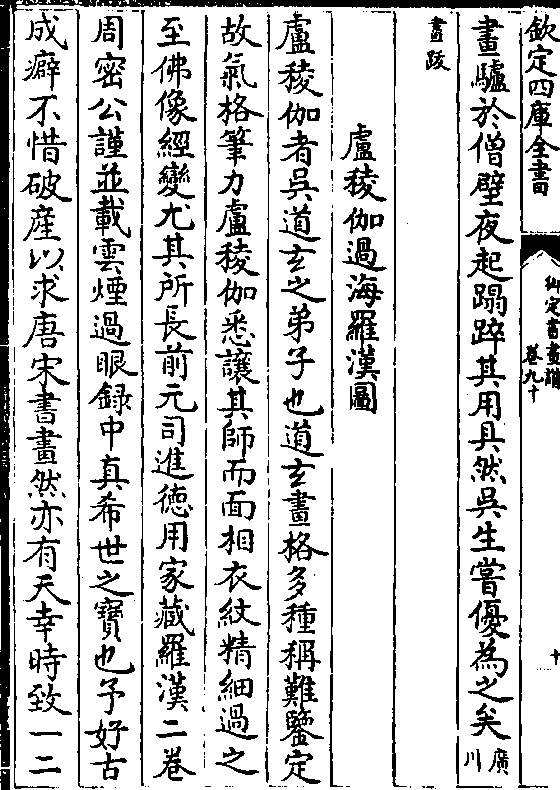 欽定四庫全書
御定書畫譜
卷九十
十
畫驢於僧壁夜起蹋踤其用具然吳生嘗優為之矣廣川
畫跋
盧稜伽過海羅漢圖
盧稜伽者吳道玄之弟子也道玄畫格多種稱難鑒定
故氣格筆力盧稜伽悉讓其師而面相衣紋精細過之
至佛像經變尤其所長前元司進德用家藏羅漢二卷
周密公謹並載雲煙過眼録中真希世之寶也予好古
成癖不惜破産以求唐宋書畫然亦有天幸時致一二